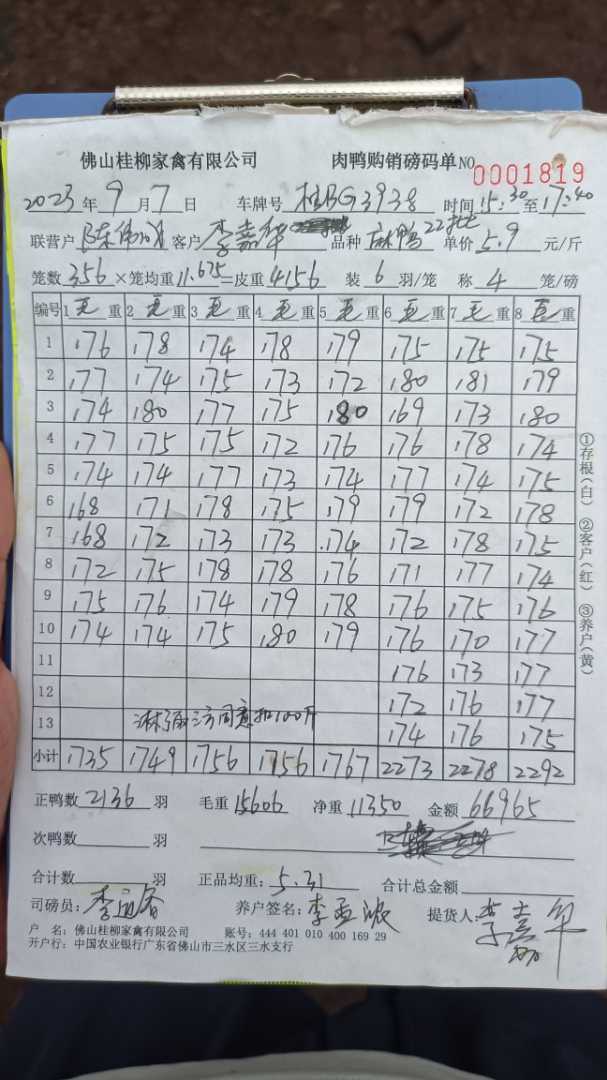 佛山桂柳家禽有限公司 肉鸭购销磅码单 NO 0001819
2023年9月7日 车牌号 桂BG3938 时间 15:30至17:40
联营户 陈伟 客户 李嘉华 品种 麻鸭22批 单价 5.9 元/斤
笼数 356 ×笼均重 11.675 =皮重 4156 装 6 羽/笼 称 4 笼/磅
编号 1毛重 2毛重 3毛重 4毛重 5毛重 6毛重 7毛重 8毛重
1 176 178 174 178 179 175 175 175
2 177 174 175 173 172 180 181 179
3 174 180 177 175 180 169 173 180
4 177 175 175 172 176 176 178 174
5 174 174 177 173 174 177 174 175
6 168 171 178 175 179 179 172 178
7 168 172 173 173 174 172 178 175
8 172 175 178 178 176 171 177 174
9 175 176 174 179 178 176 175 176
10 174 174 175 180 179 176 170 177
11 176 173 177
12 172 176 177
13 淋强 三方同意扣100斤 174 176 175
小计 1735 1749 1756 1756 1767 2273 2278 2292
①存根(白) ②客户(红) ③养户(黄)
正鸭数 2136 羽 毛重 15606 净重 11350 金额 66965
次鸭数 羽
合计数 羽 正品均重: 5.31 合计总金额
司磅员: 养户签名: 李孟波 提货人: 李嘉华
户 名: 佛山桂柳家禽有限公司 账号: 444 401 010 400 169 29
开户行: 中国农业银行广东省佛山市三水区三水支行